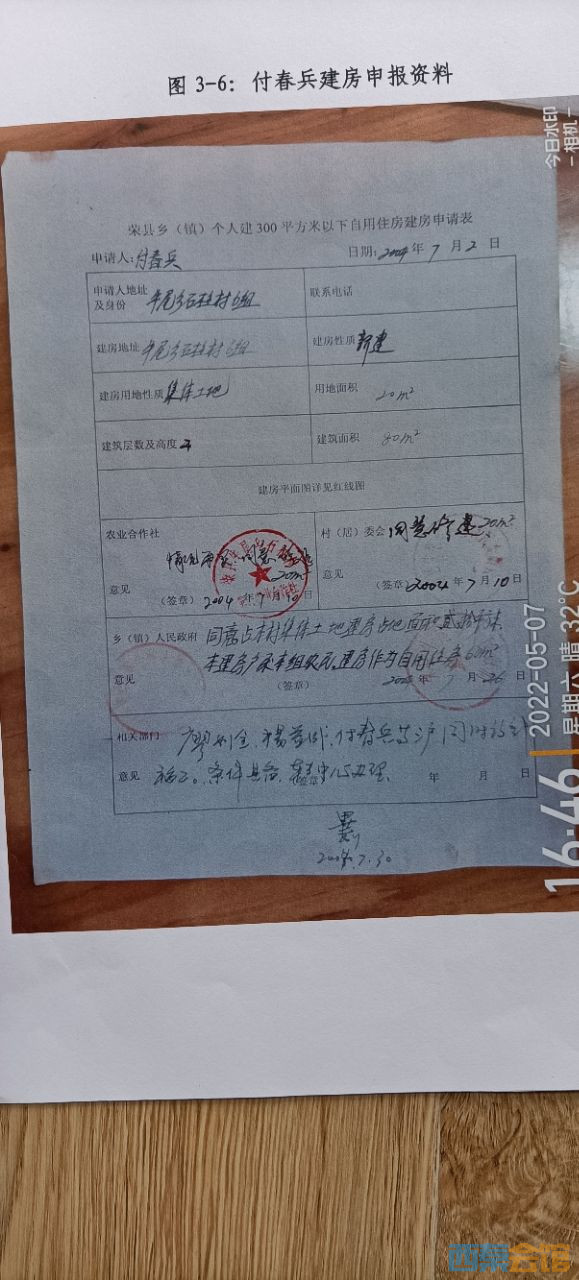 图 3-6：付春兵建房申报资料
荣县乡（镇）个人建300平方米以下自用住房建房申请表
申请人：付春兵 日期：2004年7月2日
申请人地址及身份 牟尾乡石柱村6组 联系电话
建房地址 牟尾乡石柱村6组 建房性质 新建
建房用地性质 集体土地 用地面积 20m²
建筑层数及高度 建筑面积 80m²
建房平面图详见红线图
农业合作社 村（居）委会 同意修建20m²
情况 同意
20m²
意见 意见
（签章）2004年7月10日 （签章）2004年7月10日
乡（镇）人民政府 同意占本村集体土地建房占地面积贰拾平米
本建房户系本组农民，建房作为自用住房60m²
意见 （签章） 7月26日
相关部门 付春兵 户同时
意见 条件具备 办理 年 月 日
2004.7.30
今日水印
-相机-
16:46
2022-05-07
星期六 晴 32°C
西秦会馆